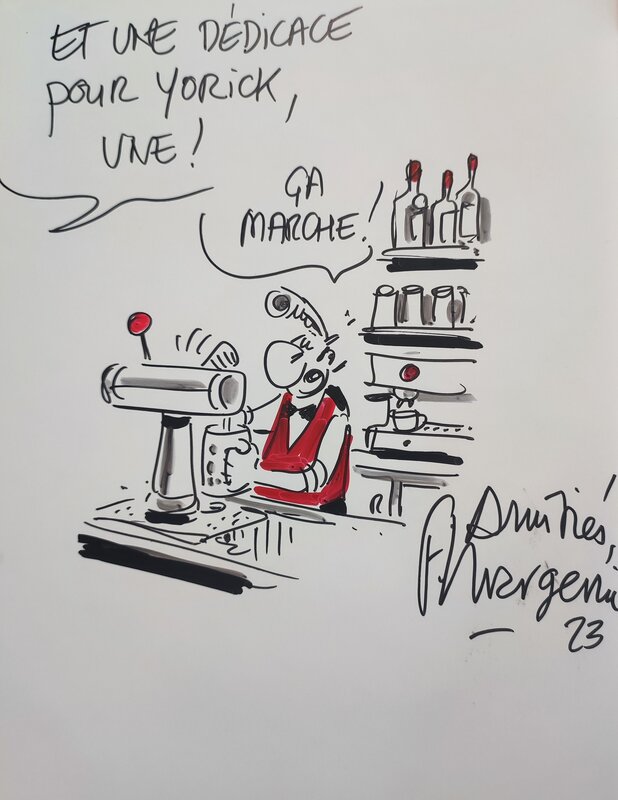 ET UNE DÉDICACE
POUR YORICK,
UNE !
ÇA
MARCHE !
Amitiés,
F Margerin
23